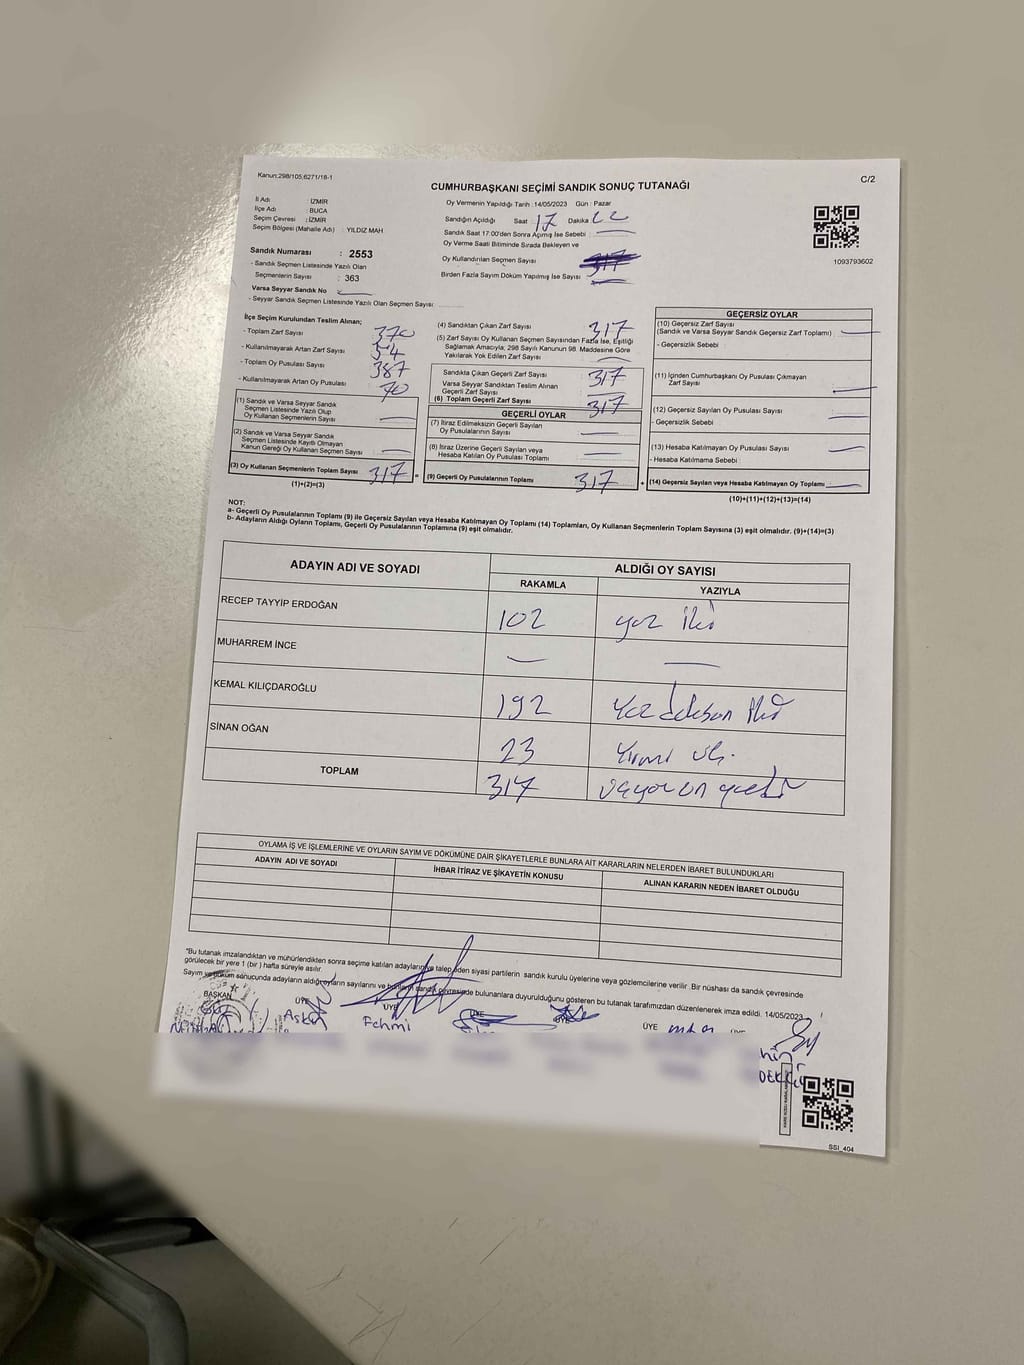 Kanun:298/105,6271/18-1
C/2
CUMHURBAŞKANI SEÇİMİ SANDIK SONUÇ TUTANAĞI
İl Adı : İZMİR
İlçe Adı : BUCA
Seçim Çevresi : İZMİR
Seçim Bölgesi (Mahalle Adı) : YILDIZ MAH
Sandık Numarası : 2553
- Sandık Seçmen Listesinde Yazılı Olan
Seçmenlerin Sayısı : 363
Varsa Seyyar Sandık No
- Seyyar Sandık Seçmen Listesinde Yazılı Olan Seçmen Sayısı:
Oy Vermenin Yapıldığı Tarih :14/05/2023 Gün : Pazar
Sandığın Açıldığı Saat 17 Dakika
Sandık Saat 17:00'den Sonra Açılmış İse Sebebi :
Oy Verme Saati Bitiminde Sırada Bekleyen ve
Oy Kullandırılan Seçmen Sayısı
Birden Fazla Sayım Döküm Yapılmış İse Sayısı
1093793602
İlçe Seçim Kurulundan Teslim Alınan;
- Toplam Zarf Sayısı 370
- Kullanılmayarak Artan Zarf Sayısı 54
- Toplam Oy Pusulası Sayısı 387
- Kullanılmayarak Artan Oy Pusulası 70
(1) Sandık ve Varsa Seyyar Sandık
Seçmen Listesinde Yazılı Olup
Oy Kullanan Seçmenlerin Sayısı
(2) Sandık ve Varsa Seyyar Sandık
Seçmen Listesinde Kayıtlı Olmayan
Kanun Gereği Oy Kullanan Seçmen Sayısı
(3) Oy Kullanan Seçmenlerin Toplam Sayısı 317
(1)+(2)=(3)
(4) Sandıktan Çıkan Zarf Sayısı 317
(5) Zarf Sayısı Oy Kullanan Seçmen Sayısından Fazla İse, Eşitliği
Sağlamak Amacıyla, 298 Sayılı Kanunun 98. Maddesine Göre
Yakılarak Yok Edilen Zarf Sayısı
Sandıkta Çıkan Geçerli Zarf Sayısı 317
Varsa Seyyar Sandıktan Teslim Alınan
Geçerli Zarf Sayısı
(6) Toplam Geçerli Zarf Sayısı 317
GEÇERLİ OYLAR
(7) İtiraz Edilmeksizin Geçerli Sayılan
Oy Pusulalarının Sayısı
(8) İtiraz Üzerine Geçerli Sayılan veya
Hesaba Katılan Oy Pusulası Toplamı
= (9) Geçerli Oy Pusulalarının Toplamı 317 +
GEÇERSİZ OYLAR
(10) Geçersiz Zarf Sayısı
(Sandık ve Varsa Seyyar Sandık Geçersiz Zarf Toplamı)
- Geçersizlik Sebebi :
(11) İçinden Cumhurbaşkanı Oy Pusulası Çıkmayan
Zarf Sayısı
(12) Geçersiz Sayılan Oy Pusulası Sayısı
- Geçersizlik Sebebi
(13) Hesaba Katılmayan Oy Pusulası Sayısı
- Hesaba Katılmama Sebebi
(14) Geçersiz Sayılan veya Hesaba Katılmayan Oy Toplamı
(10)+(11)+(12)+(13)=(14)
NOT:
a- Geçerli Oy Pusulalarının Toplamı (9) ile Geçersiz Sayılan veya Hesaba Katılmayan Oy Toplamı (14) Toplamları, Oy Kullanan Seçmenlerin Toplam Sayısına (3) eşit olmalıdır. (9)+(14)=(3)
b- Adayların Aldığı Oyların Toplamı, Geçerli Oy Pusulalarının Toplamına (9) eşit olmalıdır.
ADAYIN ADI VE SOYADI ALDIĞI OY SAYISI
RAKAMLA YAZIYLA
RECEP TAYYİP ERDOĞAN 102 yüz iki
MUHARREM İNCE
KEMAL KILIÇDAROĞLU 192 Yüz doksan iki
SİNAN OĞAN 23 Yirmi üç.
TOPLAM 317 üçyüz on yedi
OYLAMA İŞ VE İŞLEMLERİNE VE OYLARIN SAYIM VE DÖKÜMÜNE DAİR ŞİKAYETLERLE BUNLARA AİT KARARLARIN NELERDEN İBARET BULUNDUKLARI
ADAYIN ADI VE SOYADI İHBAR İTİRAZ VE ŞİKAYETİN KONUSU ALINAN KARARIN NEDEN İBARET OLDUĞU
*Bu tutanak imzalandıktan ve mühürlendikten sonra seçime katılan adaylara ve talep eden siyasi partilerin sandık kurulu üyelerine veya gözlemcilerine verilir. Bir nüshası da sandık çevresinde
görülecek bir yere 1 (bir) hafta süreyle asılır.
Sayım ve döküm sonucunda adayların aldığı oyların sayılarını ve bunların sandık çevresinde bulunanlara duyurulduğunu gösteren bu tutanak tarafımızdan düzenlenerek imza edildi. 14/05/2023
BAŞKAN ÜYE ÜYE ÜYE ÜYE ÜYE ÜYE
Askın Fehmi
SSI_404